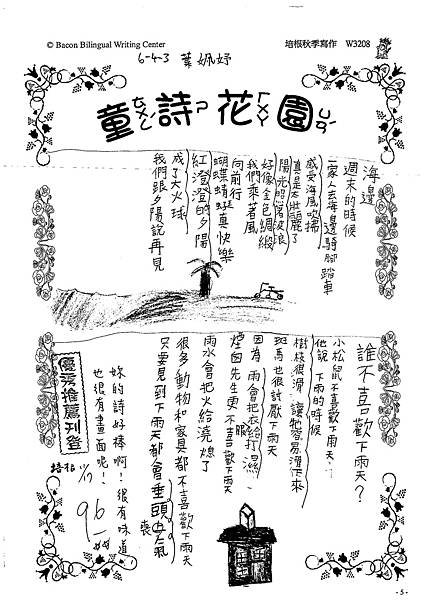 © Bacon Bilingual Writing Center
培根秋季寫作 W3208
6-4-3 葉姵妤
童詩花園
海邊
週末的時候
一家人去海邊騎腳踏車
感受海風吹拂
真是太壯麗了
陽光閃著波浪
好像金色綢緞
我們乘著風
向前行
蝴蝶蜻蜓真快樂
紅澄澄的夕陽
成了大火球
我們跟夕陽說再見
誰不喜歡下雨天?
小松鼠不喜歡下雨天,
他說下雨的時候
樹枝很滑,讓牠容易滑下來
斑馬也很討厭下雨天
因為雨會把衣服給打濕、
煙囪先生更不喜歡下雨天
雨水會把火給澆熄了
很多動物和家具都不喜歡下雨天
只要見到下雨天都會垂頭喪氣
妳的詩好棒啊!很有味道
也很有畫面呢!
優秀推薦刊登
培根
96
- 5 -